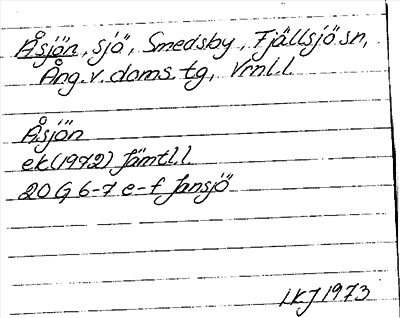 Åsjön, sjö, Smedsby, Fjällsjö sn,
Ång. v. doms. tg, Vrnl. l.
Åsjön
ek (1972) Jämtl. l
20 G 6-7 e-f Jansjö
IKJ 1973